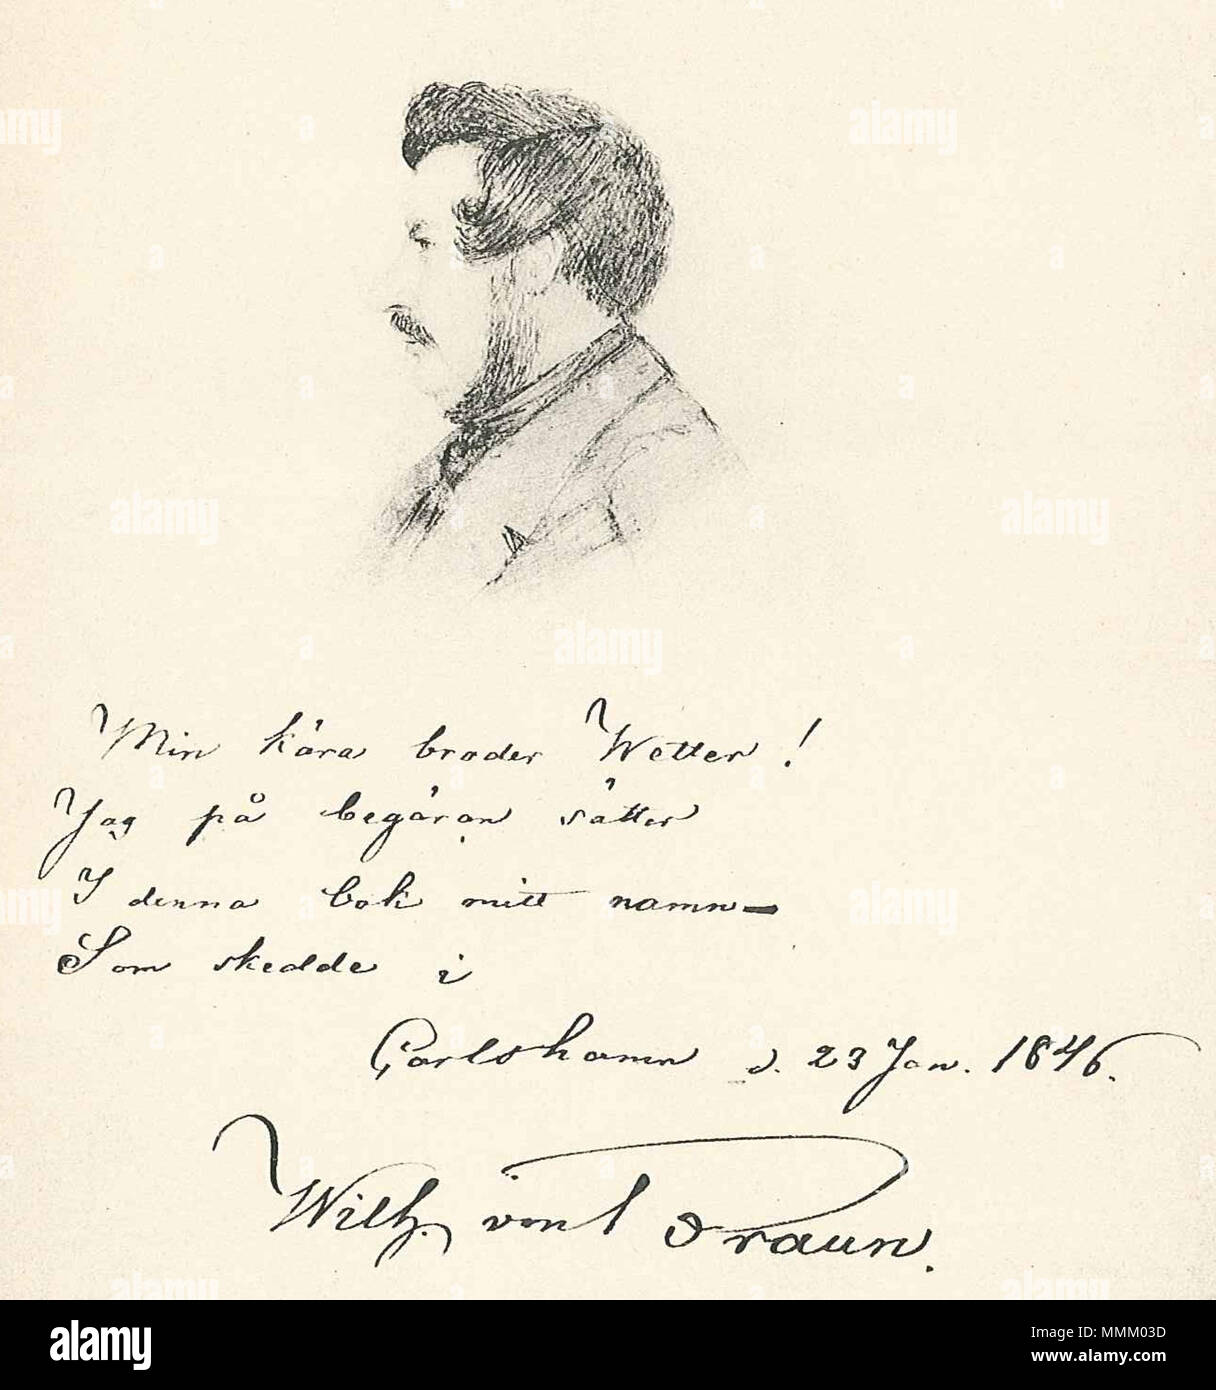 Min kära broder Wetter!
Jag på begäran sätter
I denna bok mitt namn—
Som skedde i
Carlshamn d. 23 Jan. 1846.
Wilh. von Braun.
alamy
Image ID: MMM03D
www.alamy.com